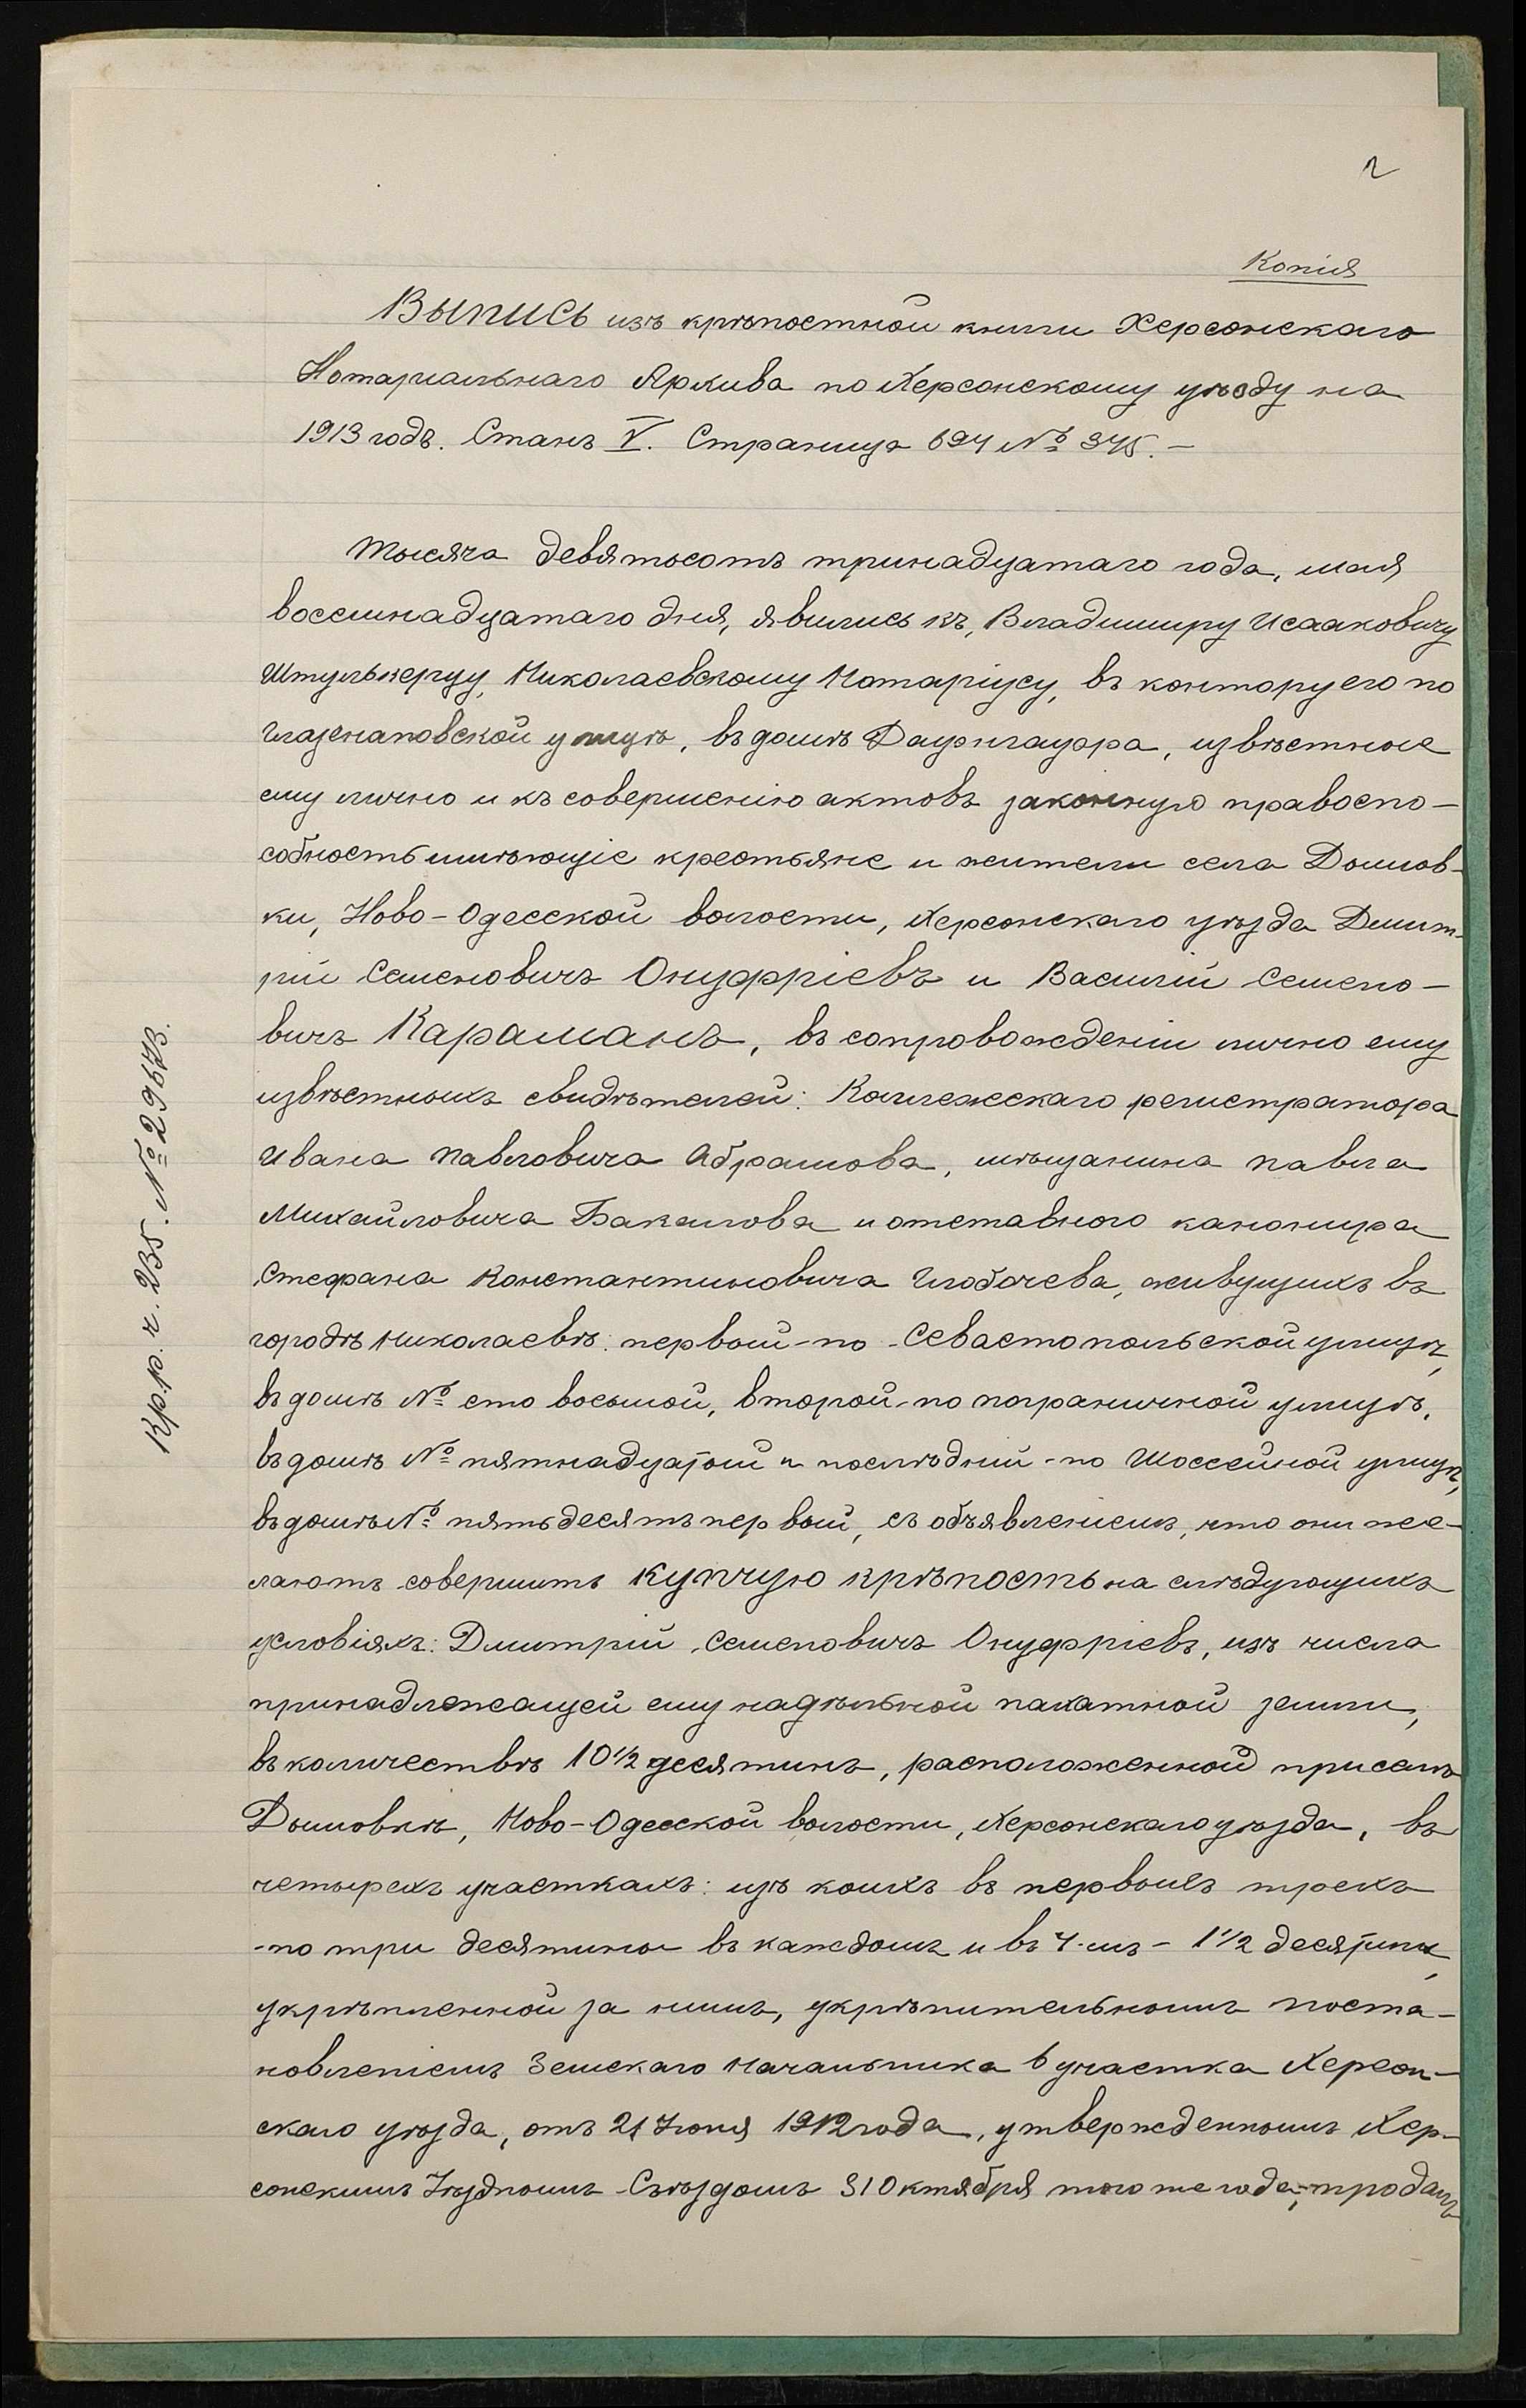 2
Копія
Выпись изъ крѣпостной книги Херсонскаго
Нотаріальнаго Архива по Херсонскому уѣзду на
1913 годъ. Станъ V. Страница 694 № 345.-
Тысяча девятьсотъ тринадцатаго года, мая
восемнадцатаго дня, явились къ, Владиміру Исааковичу
Штулькерцу, Николаевскому Нотаріусу, въ контору его по
Глазенаповской улицѣ, въ домѣ Дауэнгауэра, извѣстные
ему лично и къ совершенію актовъ законную правоспо-
собность имѣющіе крестьяне и жители села Дымов-
ки, Ново-Одесской волости, Херсонскаго уѣзда Димит-
рій Семеновичъ Онуфріевъ и Василій Семено-
вичъ Караманъ, въ сопровожденіи лично ему
извѣстныхъ свидѣтелей: Коллежскаго регистратора
Ивана Павловича Абрамова, мѣщанина Павла
Михайловича Бакалова и отставного канонира
Стефана Константиновича Глобачева, живущихъ въ
городѣ Николаевѣ: первый-по Севастопольской улицѣ,
въ домѣ № сто восьмой, второй-по Пограничной улицѣ,
въ домѣ № пятнадцатый и послѣдній-по Шоссейной улицѣ,
въ домѣ № пятьдесятъ первый, съ объявленіемъ, что они же-
лаютъ совершить купчую крѣпость на слѣдующихъ
условіяхъ: Дмитрій Семеновичъ Онуфріевъ, изъ числа
принадлежащей ему надѣльной пахатной земли,
въ количествѣ 10 1/2 десятинъ, расположенной при селѣ
Дымовкѣ, Ново-Одесской волости, Херсонскаго уѣзда, въ
четырехъ участкахъ: изъ коихъ въ первыхъ трехъ
-по три десятины въ каждомъ и въ 4-мъ - 1 1/2 десятины,
укрѣпленной за нимъ, укрѣпительнымъ поста-
новленіемъ Земскаго Начальника 6 участка Херсон-
скаго уѣзда, отъ 21 Іюня 1912 года, утвержденнымъ Хер-
сонскимъ Уѣзднымъ Съѣздомъ 31 Октября того же года, продалъ
Кр. р. ч. 235. № 29673.